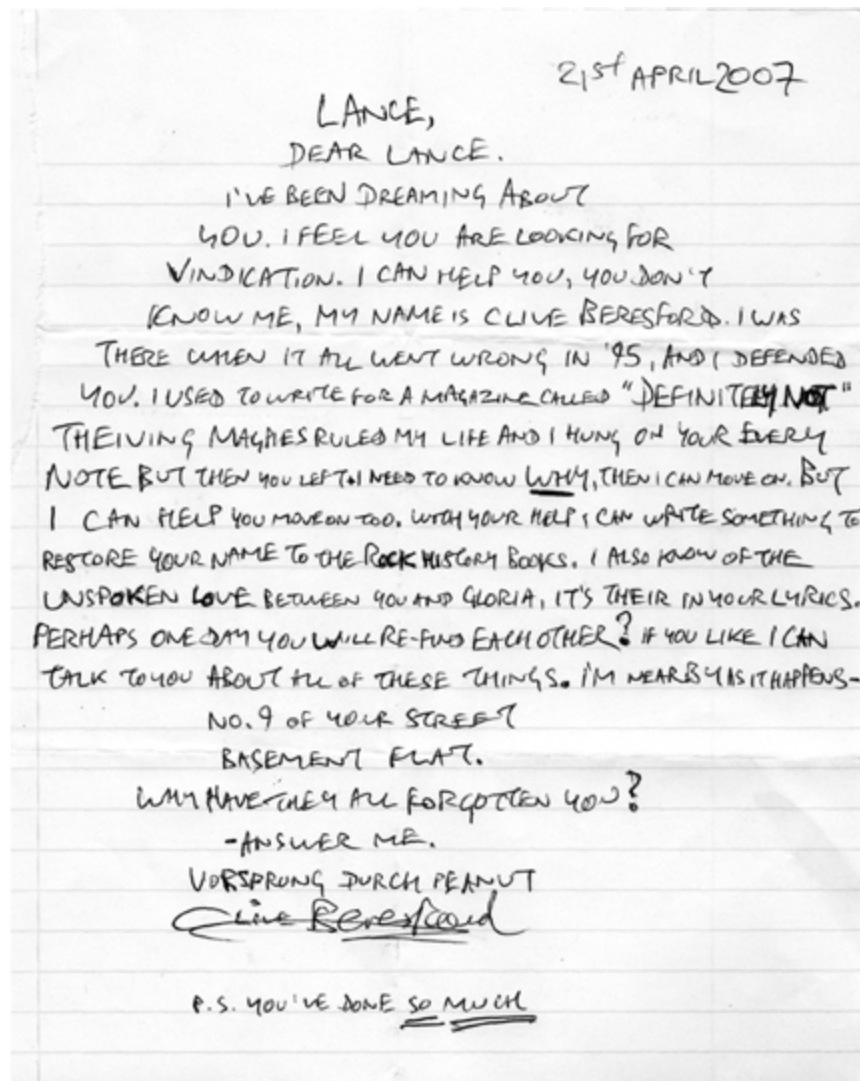 21st APRIL 2007
LANCE,
DEAR LANCE.
I'VE BEEN DREAMING ABOUT
YOU. I FEEL YOU ARE LOOKING FOR
VINDICATION. I CAN HELP YOU, YOU DON'T
KNOW ME, MY NAME IS CLIVE BERESFORD. I WAS
THERE WHEN IT ALL WENT WRONG IN '95, AND I DEFENDED
YOU. I USED TO WRITE FOR A MAGAZINE CALLED "DEFINITELY NOT"
THEIVING MAGPIES RULED MY LIFE AND I HUNG ON YOUR EVERY
NOTE BUT THEN YOU LEFT. I NEED TO KNOW WHY, THEN I CAN MOVE ON. BUT
I CAN HELP YOU MOVE ON TOO. WITH YOUR HELP I CAN WRITE SOMETHING TO
RESTORE YOUR NAME TO THE ROCK HISTORY BOOKS. I ALSO KNOW OF THE
UNSPOKEN LOVE BETWEEN YOU AND GLORIA, IT'S THEIR IN YOUR LYRICS.
PERHAPS ONE DAY YOU WILL RE-FIND EACH OTHER? IF YOU LIKE I CAN
TALK TO YOU ABOUT ALL OF THESE THINGS. I'M NEARBY AS IT HAPPENS-
NO. 9 OF YOUR STREET
BASEMENT FLAT.
WHY HAVE THEY ALL FORGOTTEN YOU?
-ANSWER ME.
VORSPRUNG DURCH PEANUT
Clive Beresford
P.S. YOU'VE DONE SO MUCH